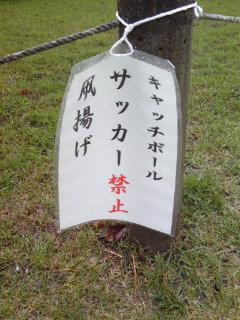 キャッチボール
サッカー禁止
凧揚げ